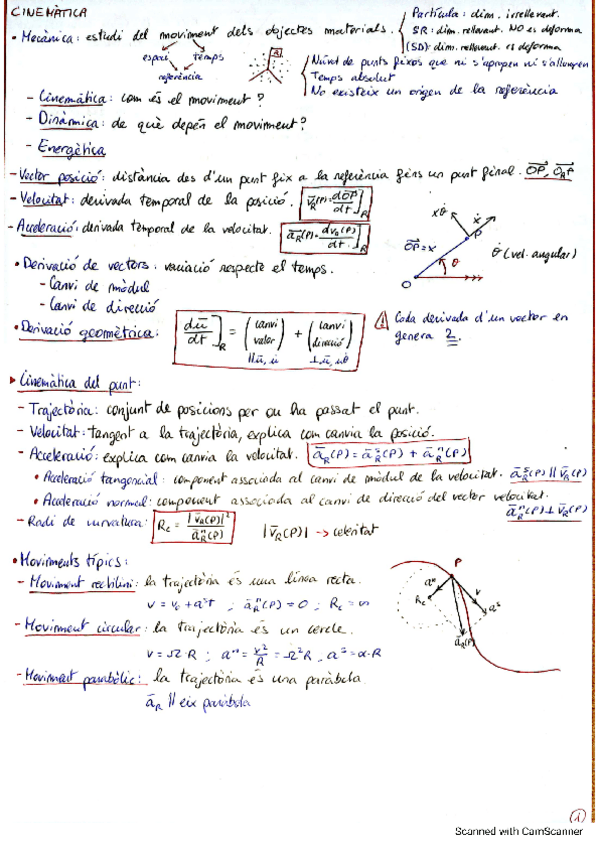 CINEMÀTICA
• Mecànica: estudi del moviment dels objectes materials.
Partícula: dim. irrellevant.
SR: dim. rellevant. NO es deforma
(SD): dim. rellevant. es deforma
espai temps
referència
Núvol de punts fixos que ni s'apropen ni s'allunyen
Temps absolut
No existeix un origen de la referència
- Cinemàtica: com és el moviment?
- Dinàmica: de què depèn el moviment?
- Energètica
- Vector posició: distància des d'un punt fix a la referència fins un punt final. OP, O_RP
- Velocitat: derivada temporal de la posició. v̄_R(P) = dOP/dt]_R
- Acceleració: derivada temporal de la velocitat. ā_R(P) = dv_R(P)/dt]_R
xθ̇ ẋ
P
OP = x
θ
θ̇ (vel. angular)
O
• Derivació de vectors: variació respecte el temps.
- Canvi de mòdul
- Canvi de direcció
• Derivació geomètrica: dū/dt]_R = (canvi valor) + (canvi direcció)
|| ū, u̇ ⊥ ū, uθ̇
Cada derivada d'un vector en
genera 2.
▸ Cinemàtica del punt:
- Trajectòria: conjunt de posicions per on ha passat el punt.
- Velocitat: tangent a la trajectòria, explica com canvia la posició.
- Acceleració: explica com canvia la velocitat. ā_R(P) = ā^s_R(P) + ā^n_R(P)
• Acceleració tangencial: component associada al canvi de mòdul de la velocitat. ā^s_R(P) || v̄_R(P)
• Acceleració normal: component associada al canvi de direcció del vector velocitat. ā^n_R(P) ⊥ v̄_R(P)
- Radi de curvatura: R_c = |v̄_R(P)|² / ā^n_R(P) |v̄_R(P)| → celeritat
• Moviments típics:
- Moviment rectilini: la trajectòria és una línea recta.
v = v₀ + a^s t ; ā^n_R(P) = 0 ; R_c = ∞
- Moviment circular: la trajectòria és un cercle.
v = Ω·R ; a^n = v²/R = Ω²R , a^s = α·R
- Moviment parabòlic: la trajectòria és una paràbola.
ā_R || eix paràbola
P
a^n
R_c
v
a^s
ā_R(P)
1
Scanned with CamScanner